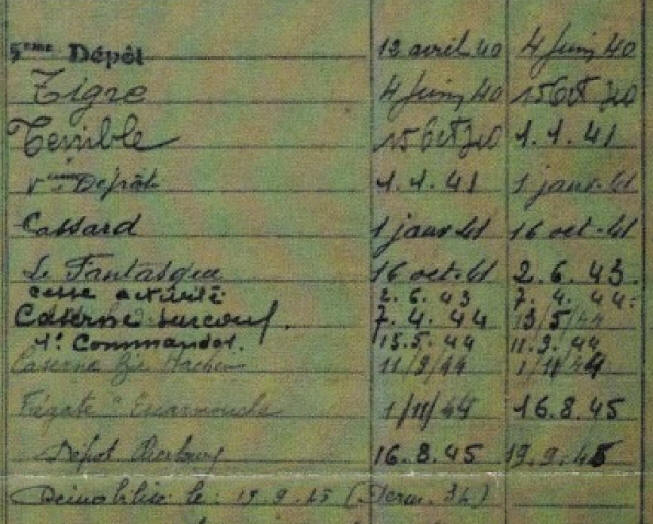 5eme Dépôt 12 avril 40 4 Juin 40
Tigre 4 Juin 40 15 Oct 40
Terrible 15 Oct 40 1.1.41
Veme Dépôt 1.1.41 1 janv. 41
Cassard 1 janv 41 16 oct. 41
Le Fantasque 16 oct. 41 2.6.43
cesse activité 2.6.43 7.4.44.
Caserne Surcouf. 7.4.44 13/5/44
1r Commandos. 13.5.44 11.9.44
Caserne 11/9/44 1/11/44
Frégate "Escarmouche 1/11/44 16.8.45
Dépot Cherbourg 16.8.45 19.9.45
Démobilisé le: 19.9.45 (